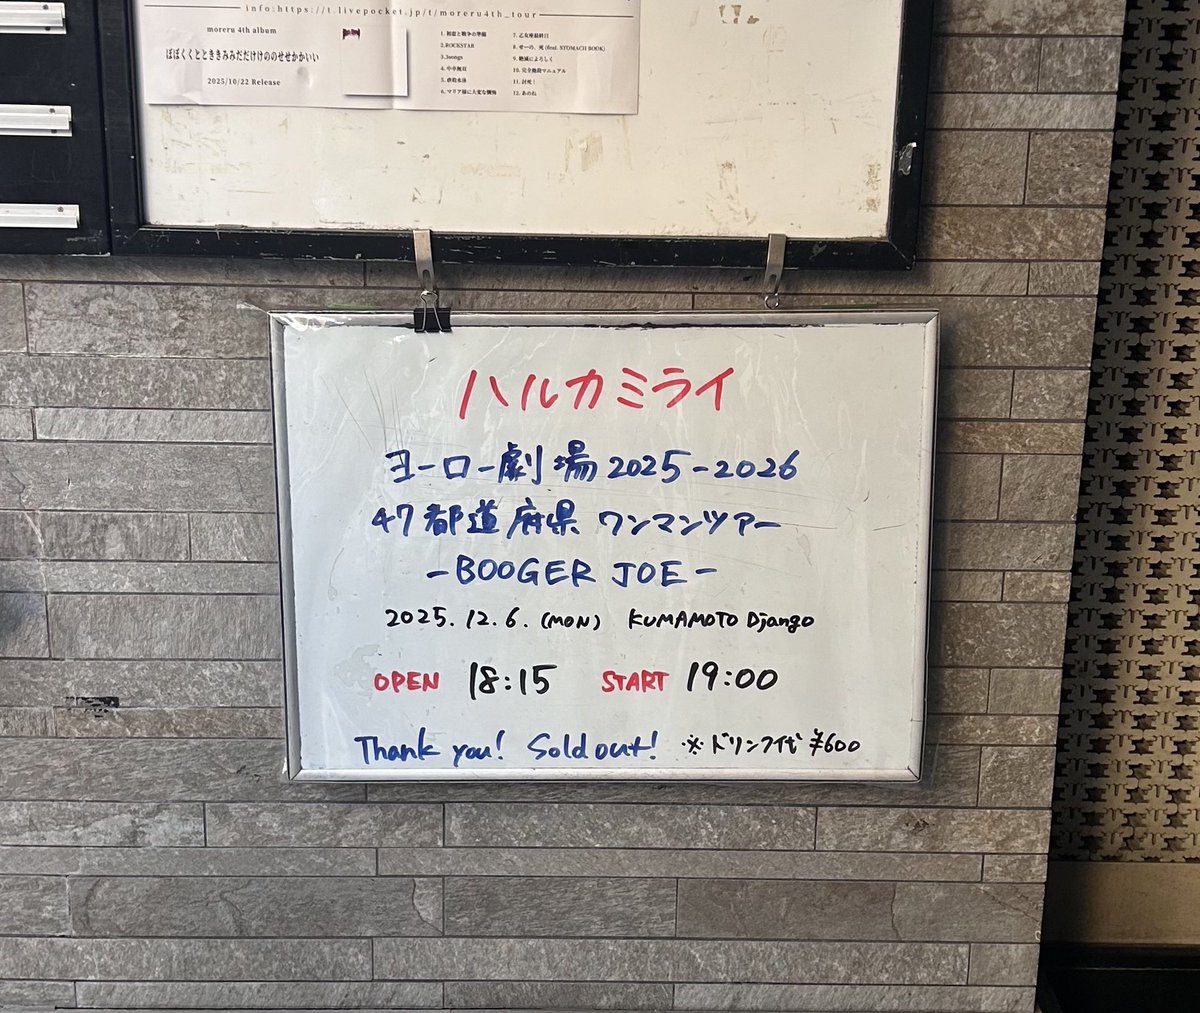 info:https://t.livepocket.jp/t/moreru4th_tour
moreru 4th album
ぼぼくくとときききみみだだけけののせせかかいい
2025/10/22 Release
1. 初恋と戦争の準備
2.ROCKSTAR
3.3songs
4. 中卒無双
6. マリア様に大変な懺悔
7. 乙女座最終日
8. せーの、死 (feat. STOMACH BOOK)
9. 絶滅によろしく
10. 完全絶殺マニュアル
11. 討死！
12. あのね
ハルカミライ
ヨーロー劇場2025-2026
47都道府県 ワンマンツアー
-BOOGER JOE-
2025.12.6.(MON) KUMAMOTO Django
OPEN 18:15 START 19:00
Thank you! Sold out! ※ドリンク代¥600